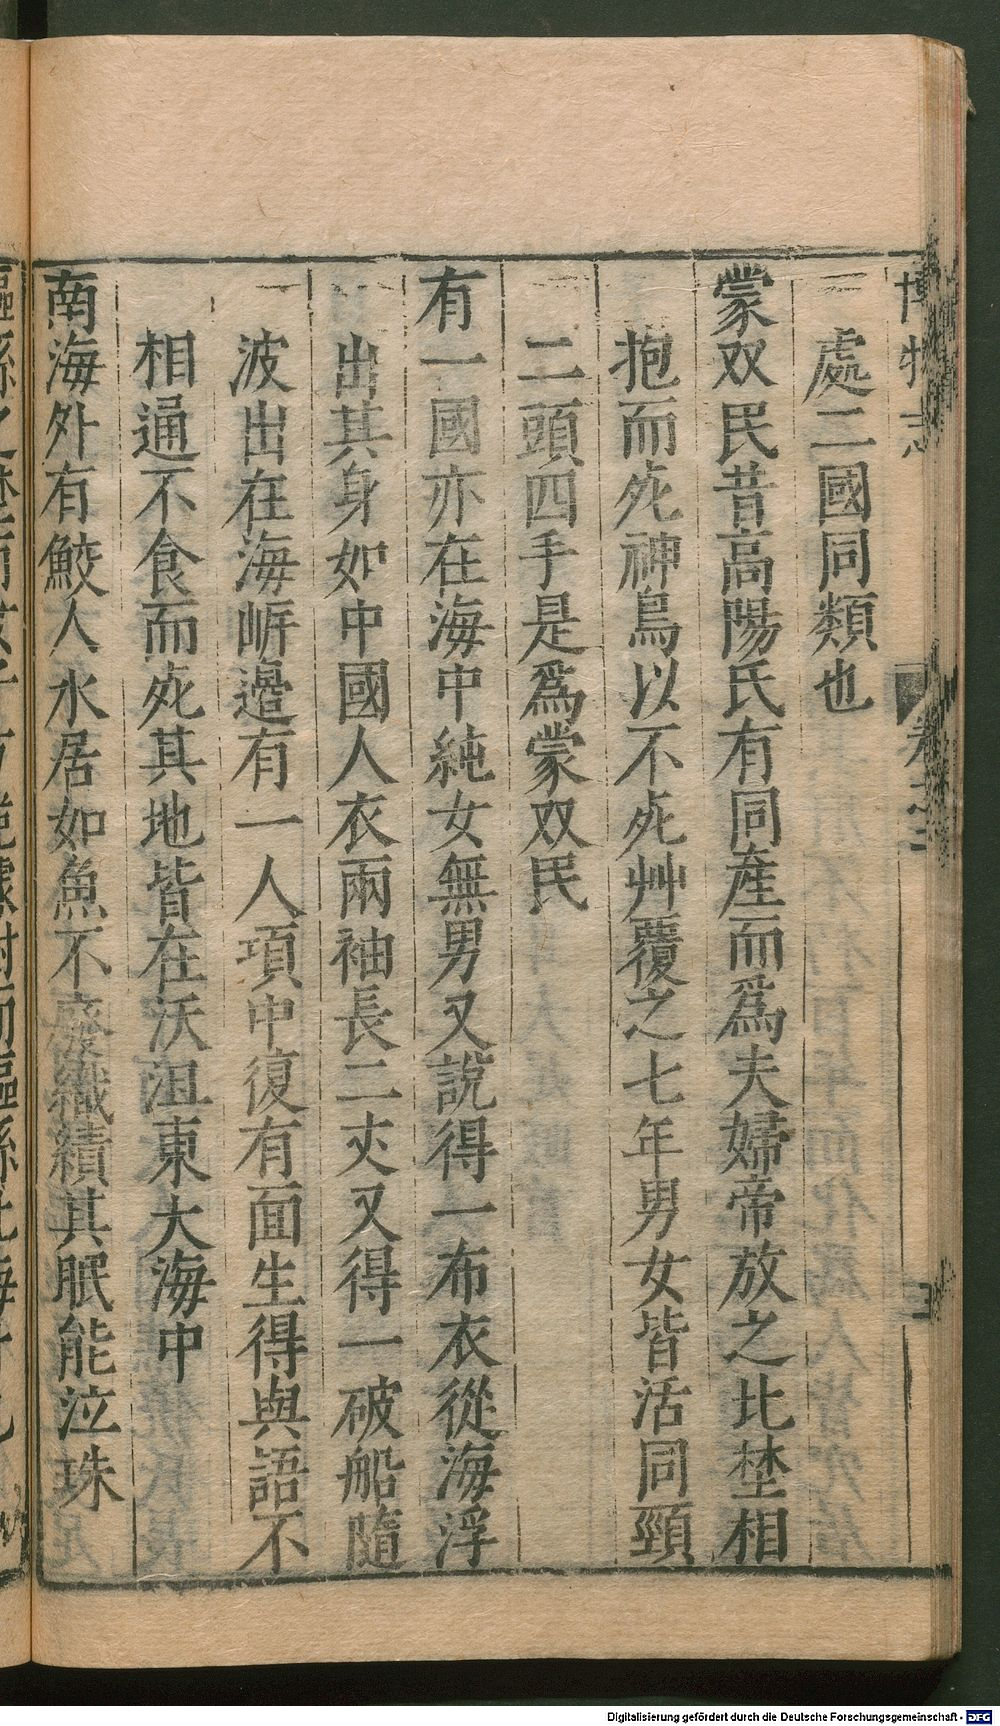 博物志 卷之二 三
處二國同類也
蒙双民昔高陽氏有同產而爲夫婦帝放之此埜相
抱而死神鳥以不死艸覆之七年男女皆活同頸
二頭四手是爲蒙双民
有一國亦在海中純女無男又說得一布衣從海浮
出其身如中國人衣兩袖長二丈又得一破船隨
波出在海岍邉有一人項中復有面生得與語不
相通不食而死其地皆在沃沮東大海中
南海外有鮫人水居如魚不廢織績其眠能泣珠
Digitalisierung gefördert durch die Deutsche Forschungsgemeinschaft - DFG